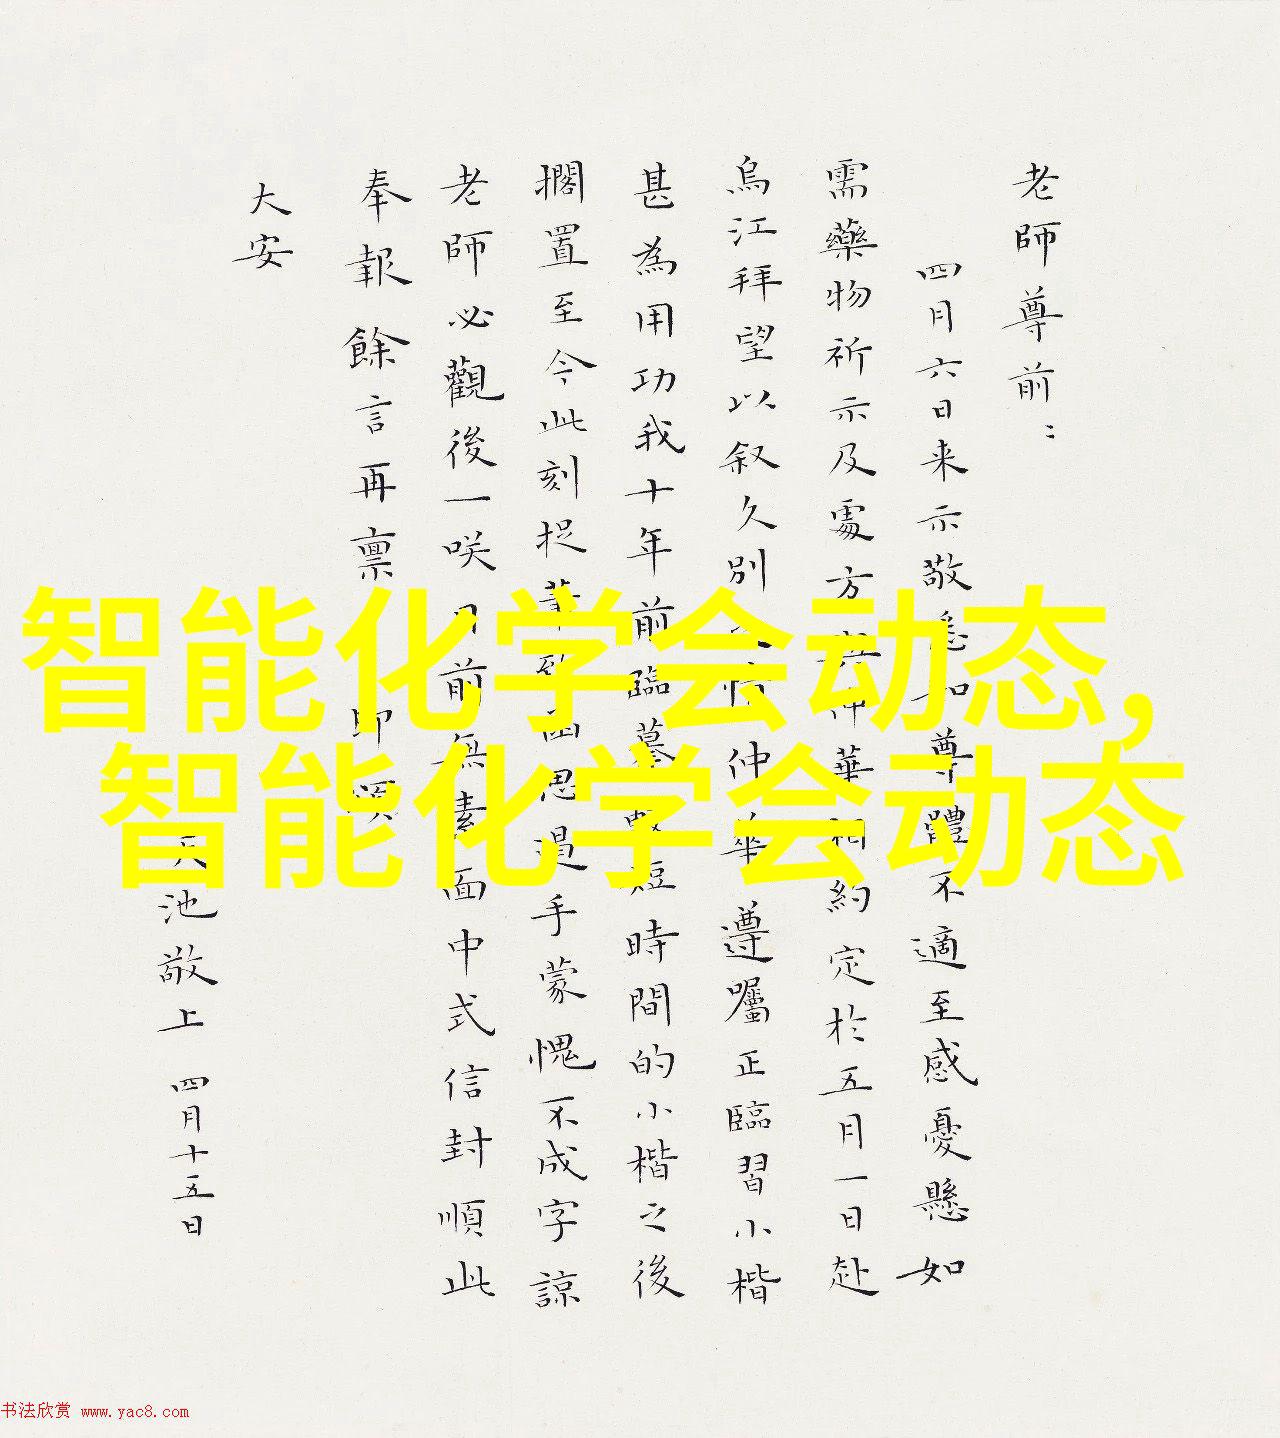 老師尊前：
四月六日来示敬悉知尊體不適至感憂懸如
需藥物祈示及處方 仲華相約定於五月一日赴
烏江拜望以叙久別 情仲華遵囑正臨習小楷
甚為用功我十年前臨摹 短時間的小楷之後
擱置至今此刻捉筆致函思過手蒙愧不成字諒
老師必觀後一咲目前無素面中式信封順此
奉報餘言再禀 即頌
大安
天池敬上 四月十五日
智能化学会动态，
智能化学会动态
书法欣赏 www.yac8.com